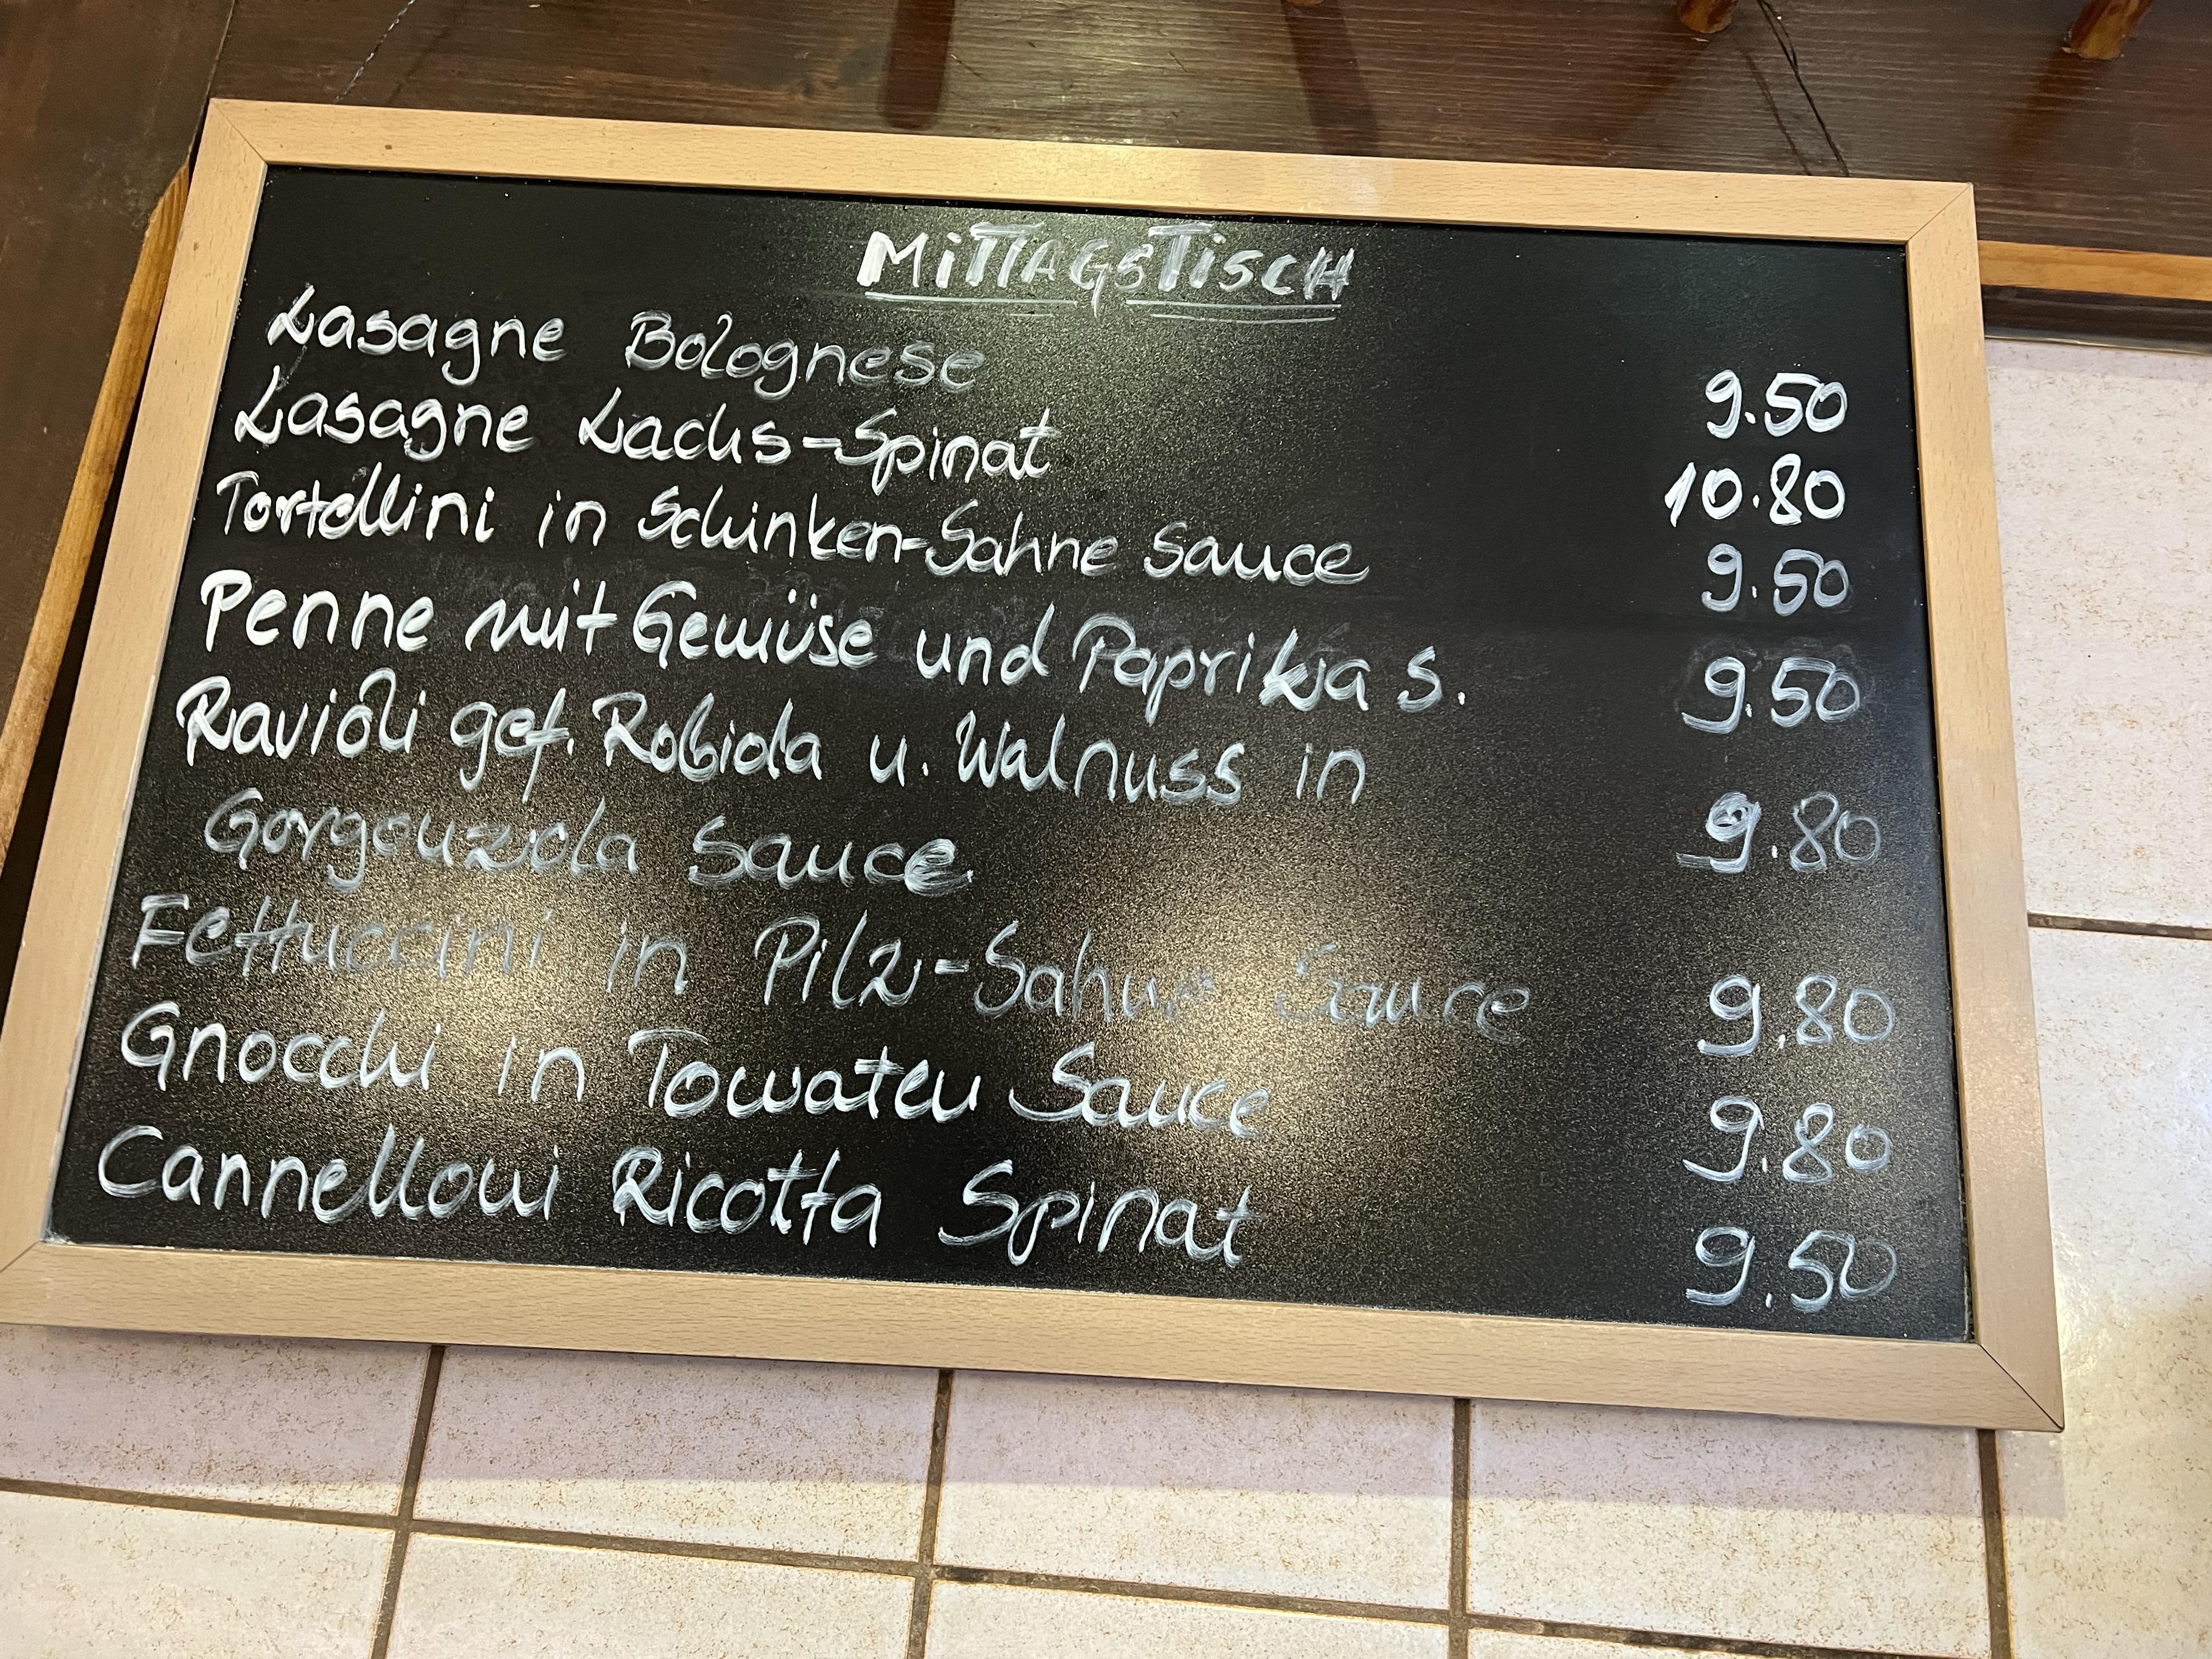 MiTTAGSTiSCH
Lasagne Bolognese 9.50
Lasagne Lachs-Spinat 10.80
Tortellini in Schinken-Sahne Sauce 9.50
Penne mit Gemüse und Paprika S. 9.50
Ravioli gef. Robiola u. Walnuss in
Gorgonzola Sauce 9.80
Fettuccini in Pilz-Sahne Sauce 9.80
Gnocchi in Tomaten Sauce 9.80
Cannelloni Ricotta Spinat 9.50